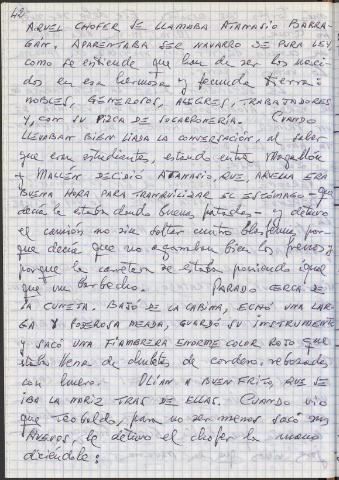 42
AQUEL CHOFER SE LLAMABA ATANASIO BARRA-
GÁN. APARENTABA SER NAVARRO DE PURA LEY
como se entiende que han de ser los naci-
dos en esa hermosa y fecunda tierra:
NOBLES, GENEROSOS, ALEGRES, TRABAJADORES
Y, CON SU PIZCA DE SOCARRONERÍA. CUANDO
LLEVABAN BIEN LIADA LA CONVERSACIÓN, al saber
que eran estudiantes, estando entre Magallón
y MALLÉN DECIDIÓ ATANASIO, QUE, AQUELLA ERA
BUENA HORA PARA TRANQUILIZAR EL ESTÓMAGO - que
decía le estaba dando buenas patadas - y detuvo
el camión no sin soltar cuatro blasfemias por-
que decía que no agarraban bien los frenos y
porque la carretera se estaba poniendo igual
que un barbecho. PARADO CERCA DE
LA CUNETA. BAJÓ DE LA CABINA, ECHÓ UNA LAR-
GA Y PODEROSA MEADA, GUARDÓ SU INSTRUMENTO
Y SACÓ UNA FIAMBRERA ENORME COLOR ROJO que
estaba llena de chuletas de cordero, rebozadas
con huevo. OLÍAN A BUEN FRITO, QUE SE
IBA LA NARIZ TRAS DE ELLAS. CUANDO VIO
que Teobaldo, para no ser menos sacó sus
HUEVOS, le detuvo el chofer la mano
diciéndole: